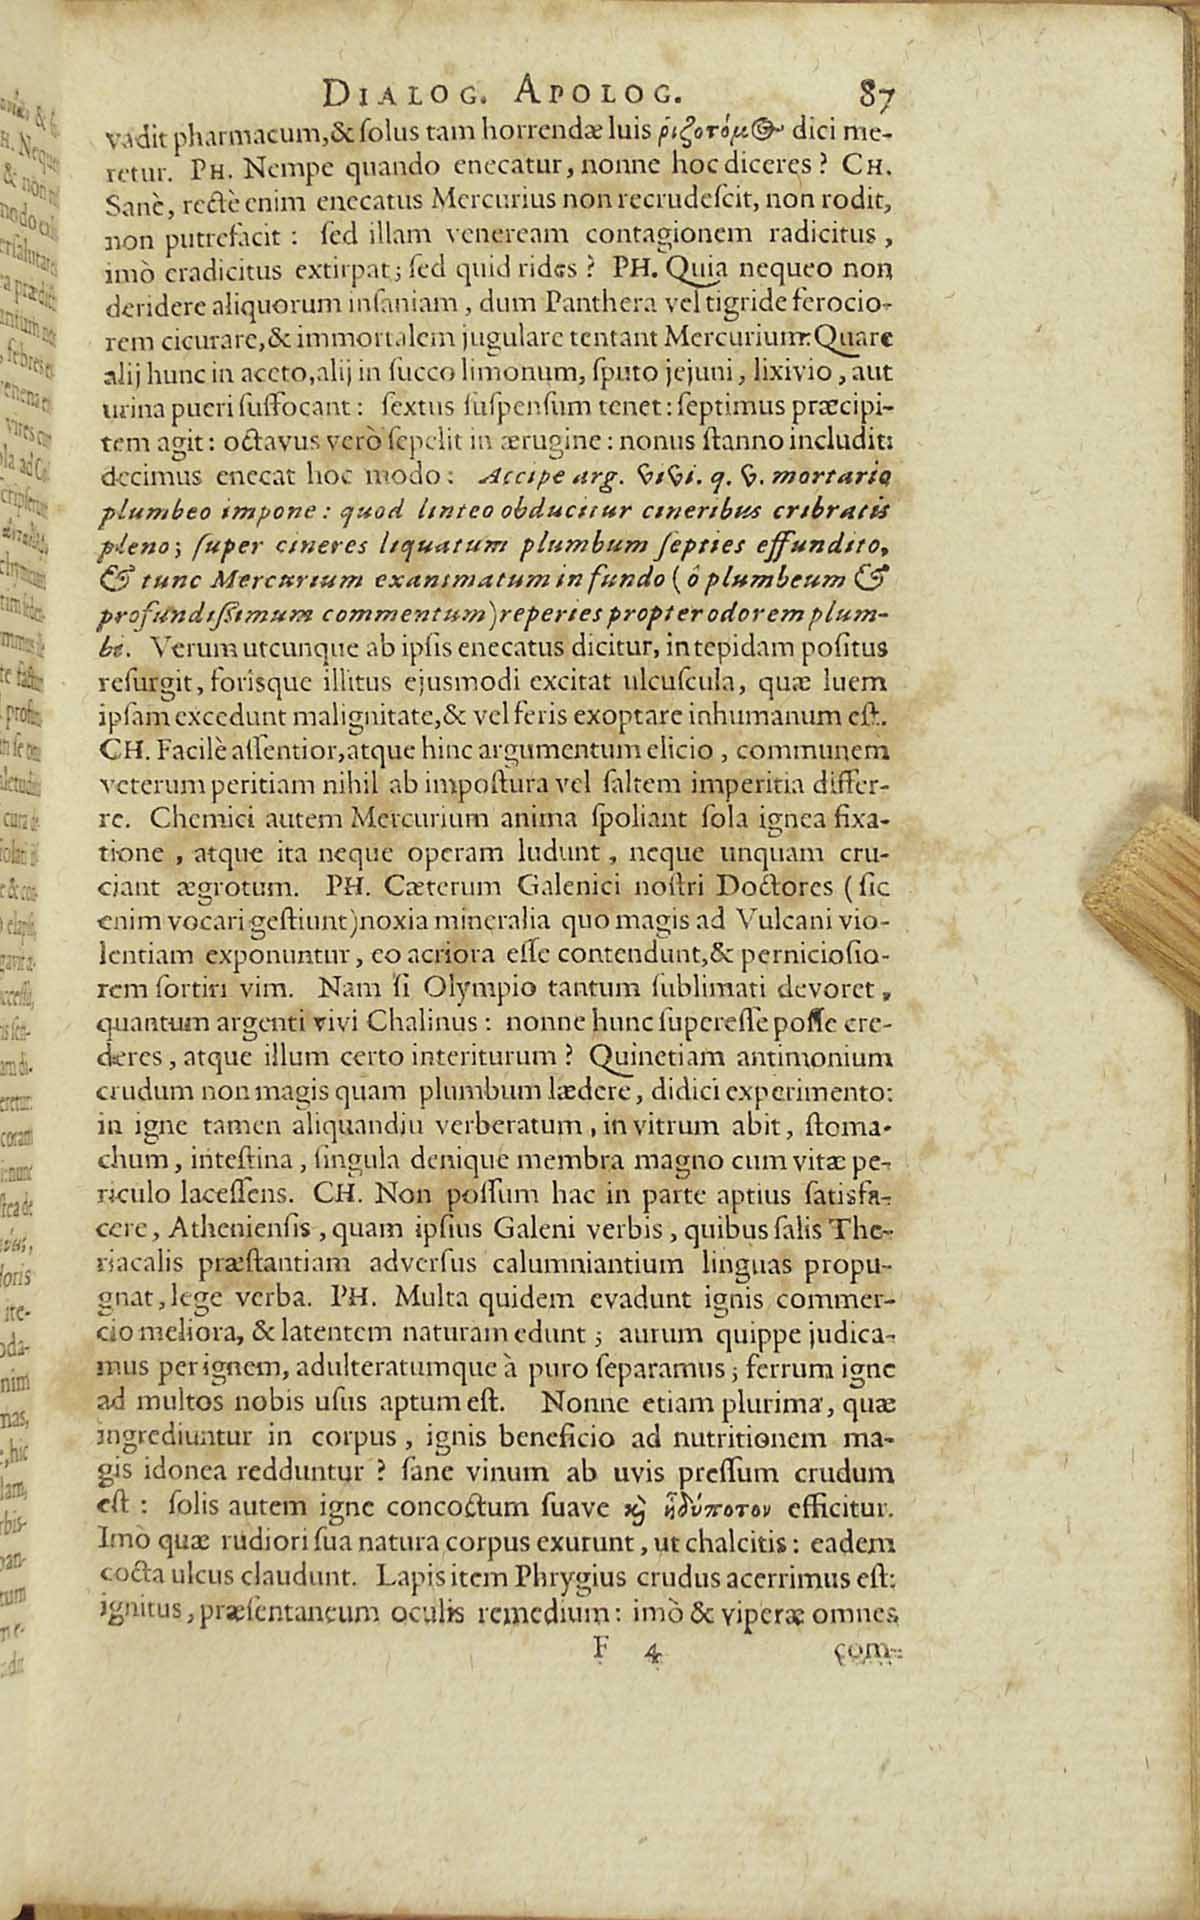 DIALOG. APOLOG. 87
vadit pharmacum, & solus tam horrendæ luis ῥιζοτόμος dici me-
retur. PH. Nempe quando enecatur, nonne hoc diceres? CH.
Sanè, rectè enim enecatus Mercurius non recrudescit, non rodit,
non putrefacit: sed illam veneream contagionem radicitus,
imò eradicitus extirpat; sed quid rides? PH. Quia nequeo non
deridere aliquorum insaniam, dum Panthera vel tigride ferocio-
rem cicurare, & immortalem jugulare tentant Mercurium: Quare
alij hunc in aceto, alij in succo limonum, sputo jejuni, lixivio, aut
urina pueri suffocant: sextus suspensum tenet: septimus præcipi-
tem agit: octavus verò sepelit in ærugine: nonus stanno includit:
decimus enecat hoc modo: Accipe arg. vivi. q. v. mortario
plumbeo impone: quod linteo obducitur cineribus cribratis
pleno; super cineres liquatum plumbum septies effundito,
& tunc Mercurium exanimatum in fundo (ô plumbeum &
profundissimum commentum) reperies propter odorem plum-
bi. Verum utcunque ab ipsis enecatus dicitur, in tepidam positus
resurgit, forisque illitus ejusmodi excitat ulcuscula, quæ luem
ipsam excedunt malignitate, & vel feris exoptare inhumanum est.
CH. Facilè assentior, atque hinc argumentum elicio, communem
veterum peritiam nihil ab impostura vel saltem imperitia differ-
re. Chemici autem Mercurium anima spoliant sola ignea fixa-
tione, atque ita neque operam ludunt, neque unquam cru-
ciant ægrotum. PH. Cæterum Galenici nostri Doctores (sic
enim vocari gestiunt) noxia mineralia quo magis ad Vulcani vio-
lentiam exponuntur, eo acriora esse contendunt, & perniciosio-
rem sortiri vim. Nam si Olympio tantum sublimati devoret,
quantum argenti vivi Chalinus: nonne hunc superesse posse cre-
deres, atque illum certo interiturum? Quinetiam antimonium
crudum non magis quam plumbum lædere, didici experimento:
in igne tamen aliquandiu verberatum, in vitrum abit, stoma-
chum, intestina, singula denique membra magno cum vitæ pe-
riculo lacessens. CH. Non possum hac in parte aptius satisfa-
cere, Atheniensis, quam ipsius Galeni verbis, quibus salis The-
riacalis præstantiam adversus calumniantium linguas propu-
gnat, lege verba. PH. Multa quidem evadunt ignis commer-
cio meliora, & latentem naturam edunt; aurum quippe judica-
mus per ignem, adulteratumque à puro separamus; ferrum igne
ad multos nobis usus aptum est. Nonne etiam plurima, quæ
ingrediuntur in corpus, ignis beneficio ad nutritionem ma-
gis idonea redduntur? sane vinum ab uvis pressum crudum
est: solis autem igne concoctum suave ϗ ἡδύποτον efficitur.
Imò quæ rudiori sua natura corpus exurunt, ut chalcitis: eadem
cocta ulcus claudunt. Lapis item Phrygius crudus acerrimus est:
ignitus, præsentaneum oculis remedium: imò & viperæ omnes
F 4 com-